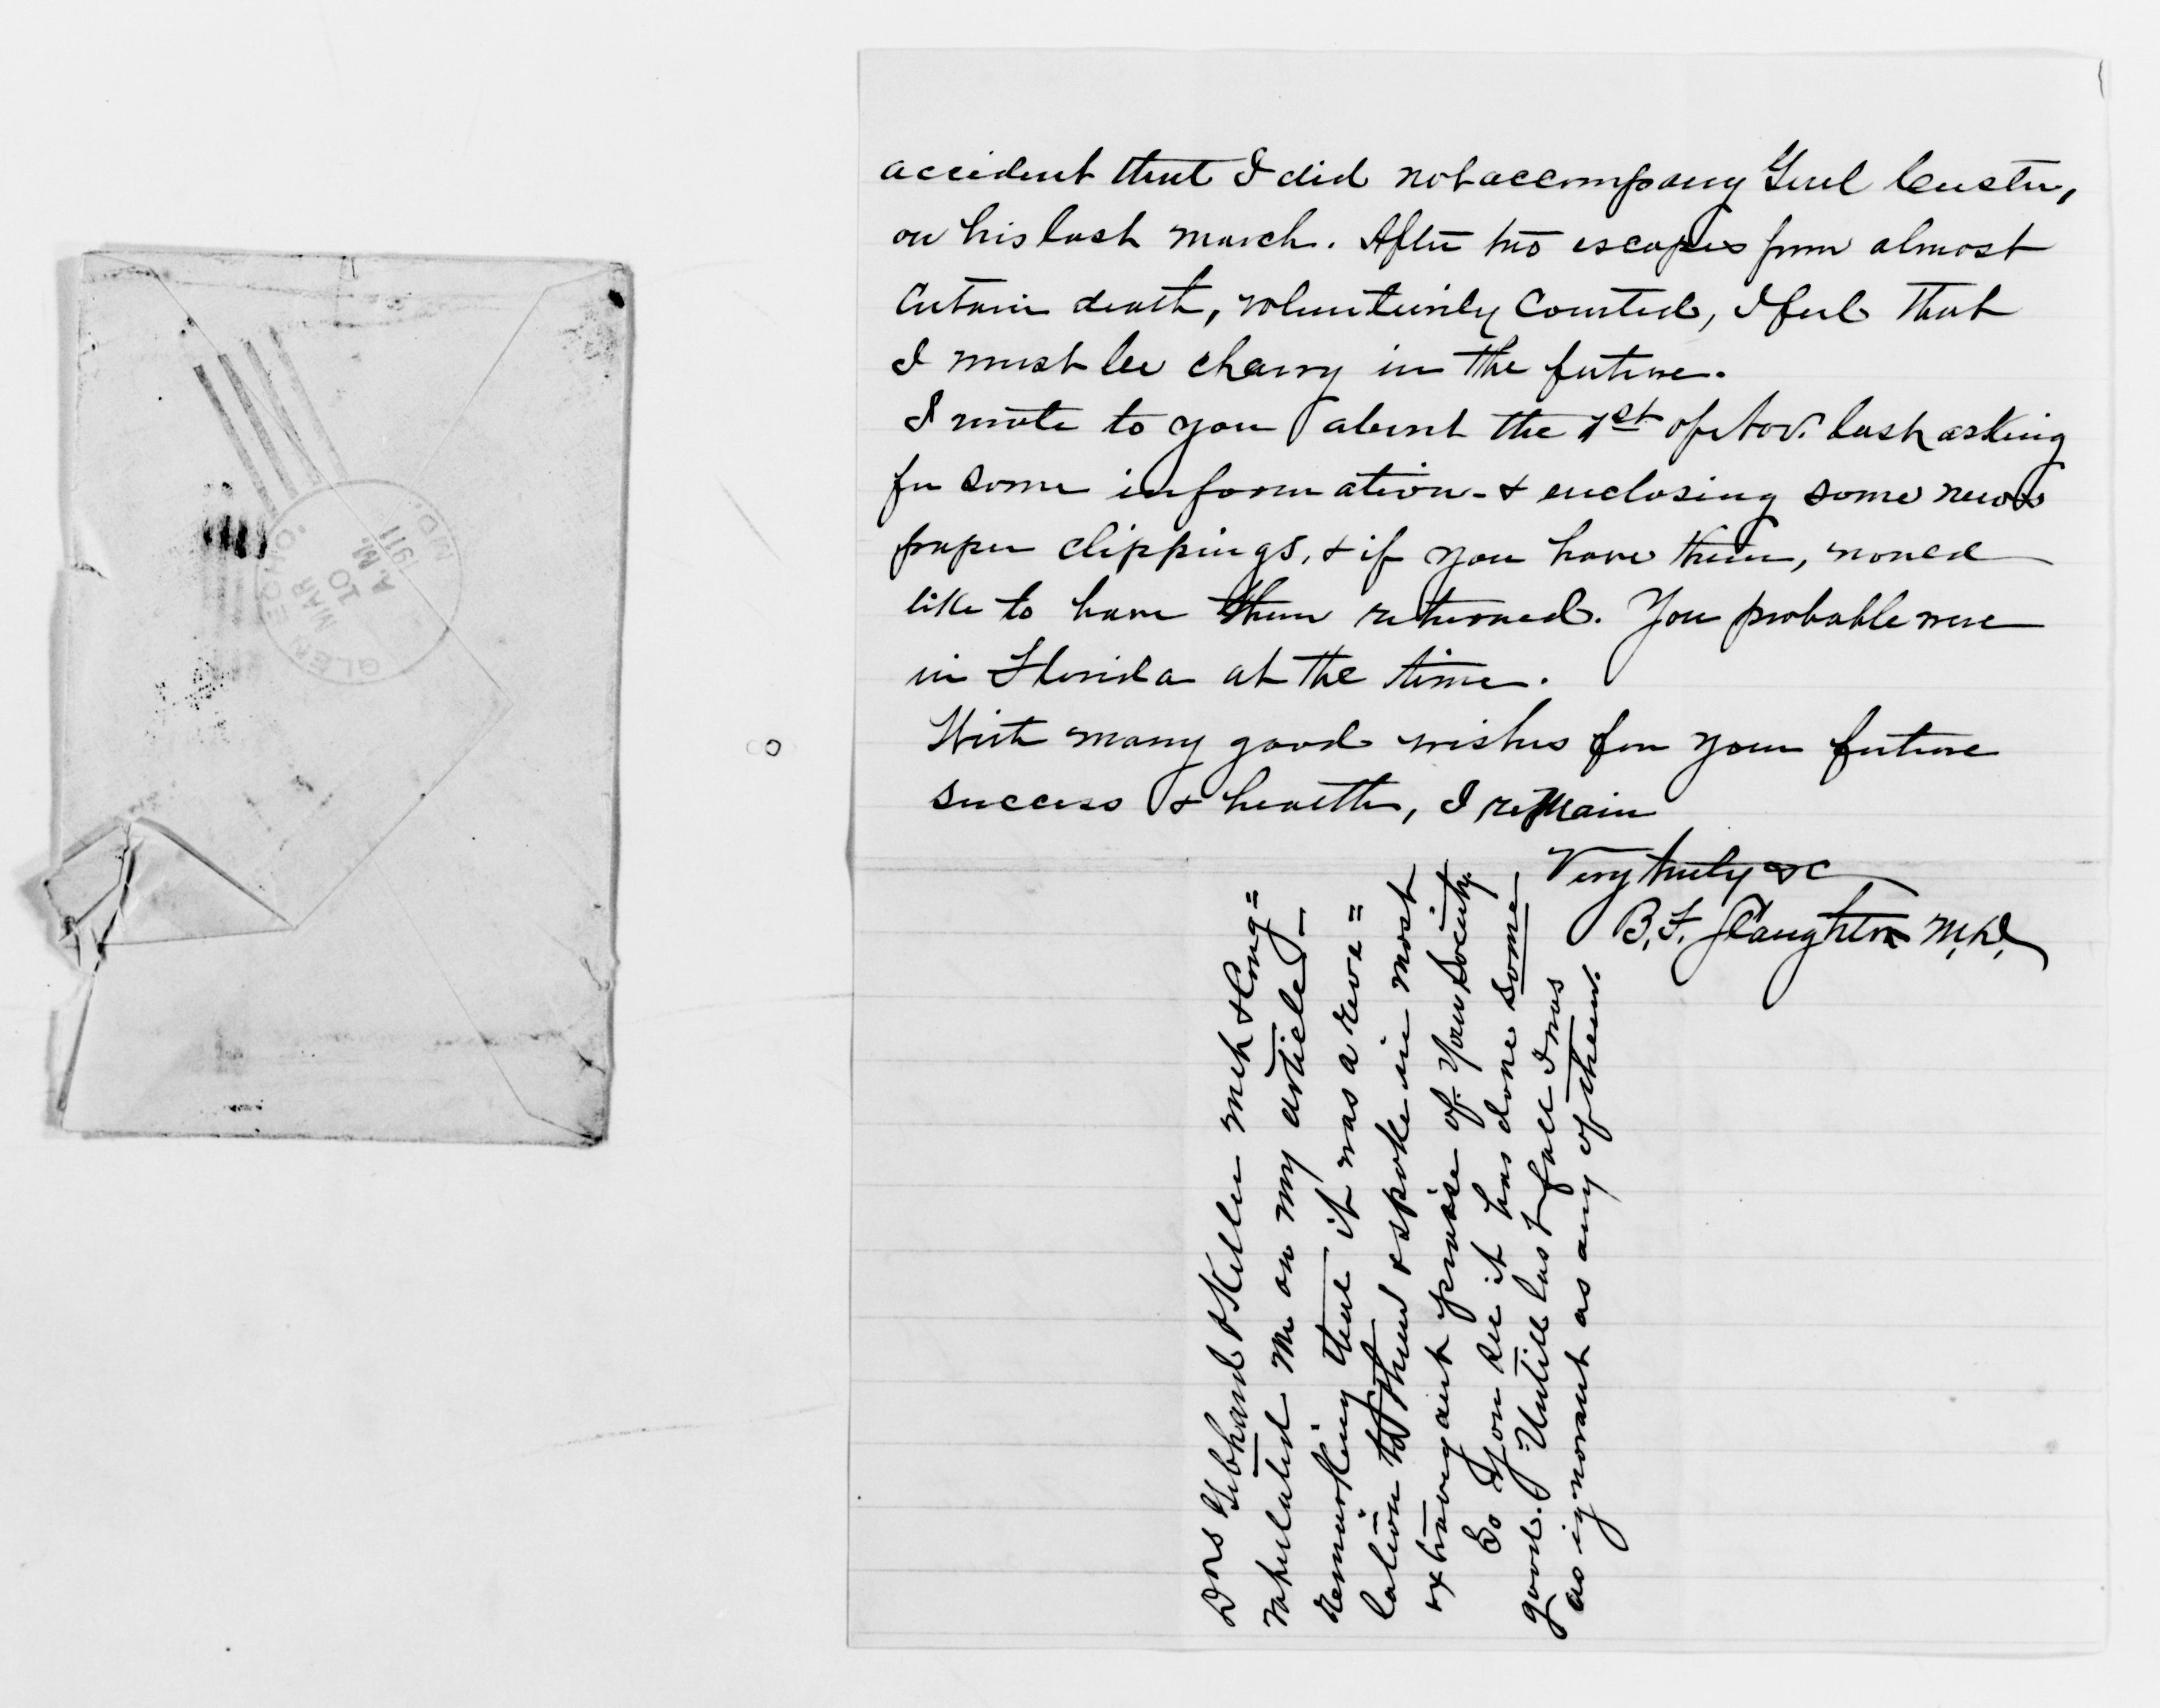 GLEN ECHO
MAR
10
A.M.
1911
MD.
accident that I did not accompany Genl Custer,
on his last march. After two escapes from almost
certain death, voluntarily courted, I feel that
I must be charry in the future.
I wrote to you about the 1st of Nov. last asking
for some information - & enclosing some news
paper clippings, & if you have them, would
like to have them returned. You probable were
in Florida at the time.
With many good wishes for your future
success & health, I remain
Very truly &c
B. F. Slaughter M.D.
Drs Gebhard & Keller much & long=
rapulated me on my article,
remarking that it was a reve=
lation to them & spoke in most
extravagant praise of your Society.
So you see it has done some
good. Untill last fall I was
as ignorant as any of them.